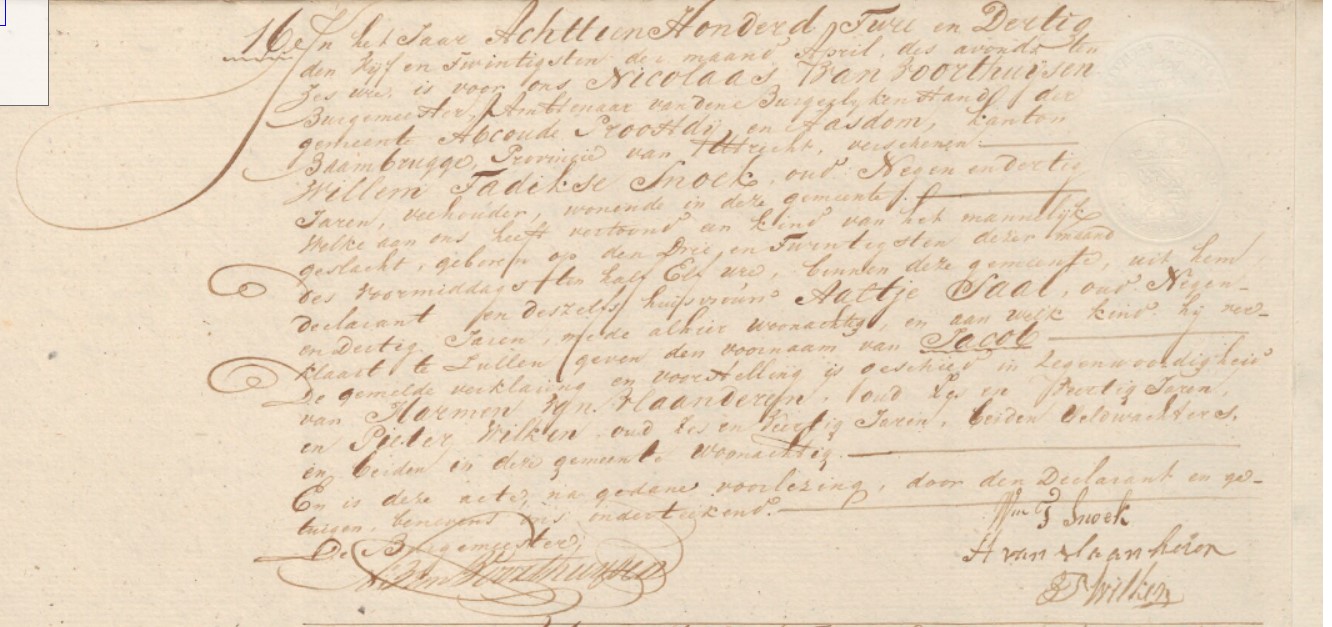 16e In het Jaar Achttien Honderd Twee en Dertig
den Vyf en Twintigsten der maand April, des avonds ten
Zes ure, is voor ons Nicolaas Van Voorthuijsen
Burgemeester, Ambtenaar van dene Burgerlyken Stand der
gemeente Abcoude Proostdij en Aasdom, kanton
Baambrugge, Provincie van Utrecht, verschenen
Willem Tadikse Snoek, oud Negen en dertig
Jaren, veehouder, wonende in deze gemeente
Welke aan ons heeft vertoond een kind van het mannelijk
geslacht, geboren op den Drie en Twintigsten dezer maand
des voormiddags ten half Elf ure, binnen deze gemeente, uit hem
declarant en deszelfs huisvrouw Aaltje Saal, oud Negen-
en Dertig Jaren, mede alhier woonachtig, en aan welk kind hij ver-
klaart te Zullen geven den voornaam van Jacob
De gemelde verklaring en voorstelling is geschied in tegenwoordigheid
van Harmen van Vlaanderen, oud Zes en Veertig Jaren,
en Pieter Wilken oud Zes en Veertig Jaren, beiden Veldwachters,
en beiden in deze gemeente woonachtig.
En is deze acte, na gedane voorlezing, door den Declarant en ge-
tuigen, benevens ons onderteekend.
Wm T Snoek
De Burgemeester,
H van vlaanderen
N Van Voorthuysen
P Wilken